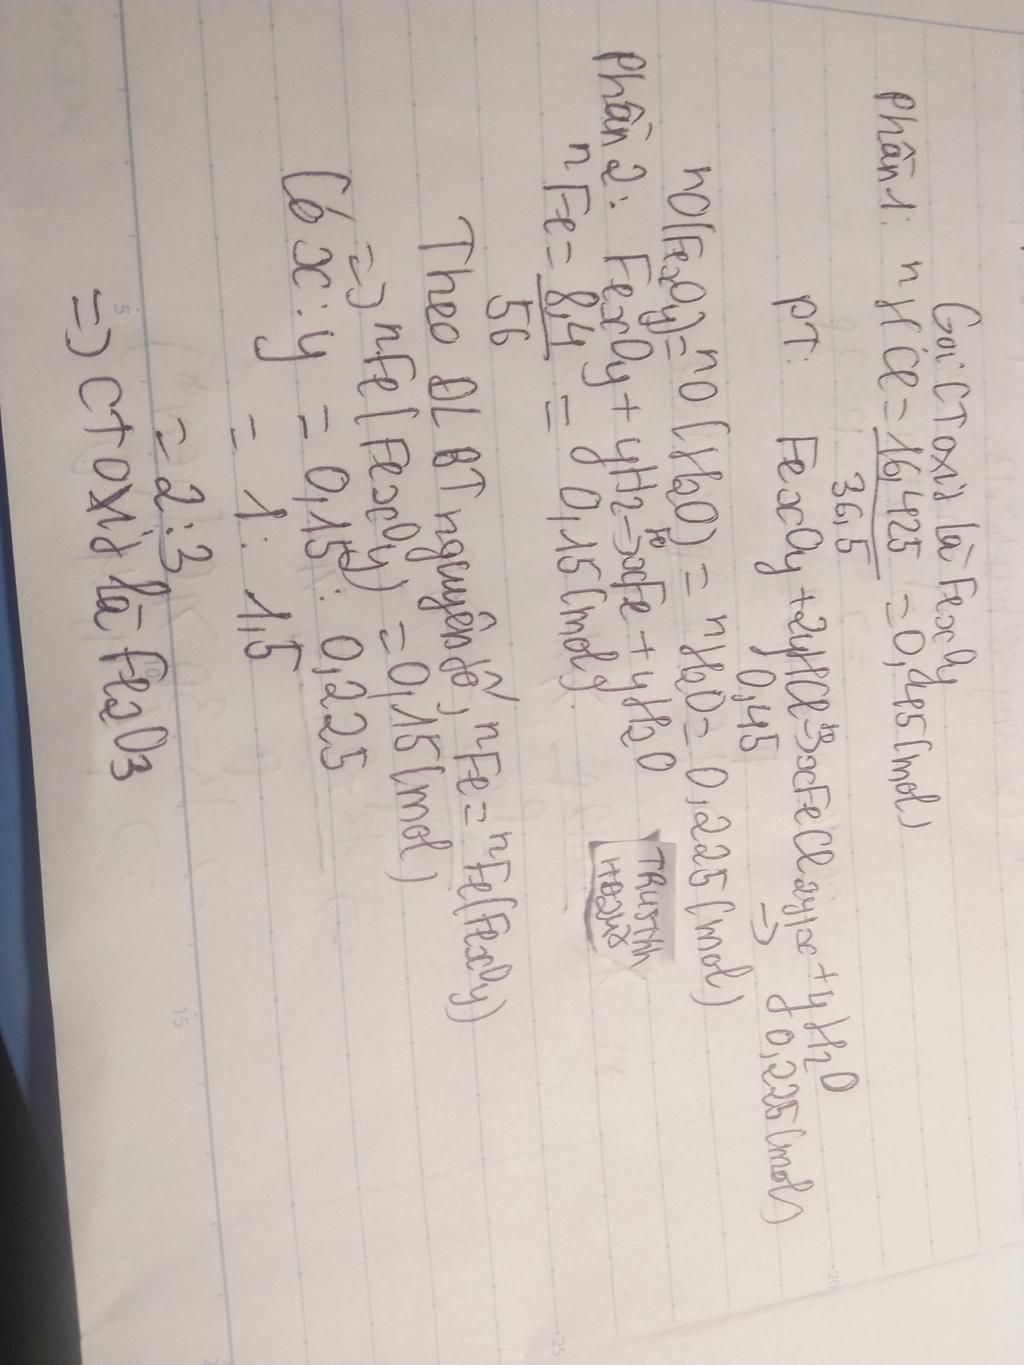 Gọi CT oxit là FexOy
Phần 1: nHCl = 16,425 / 36,5 = 0,45 (mol)
PT: FexOy + 2yHCl -to-> xFeCl2y/x + yH2O
0,45 => 0,225 (mol)
nO(FexOy) = nO(H2O) = nH2O = 0,225 (mol)
Phần 2: FexOy + yH2 -to-> xFe + yH2O
nFe = 8,4 / 56 = 0,15 (mol)
Theo ĐL BT nguyên tố, nFe = nFe(FexOy)
=> nFe(FexOy) = 0,15 (mol)
Có x : y = 0,15 : 0,225
= 1 : 1,5
= 2 : 3
=> CT oxit là Fe2O3
5
15
20
25